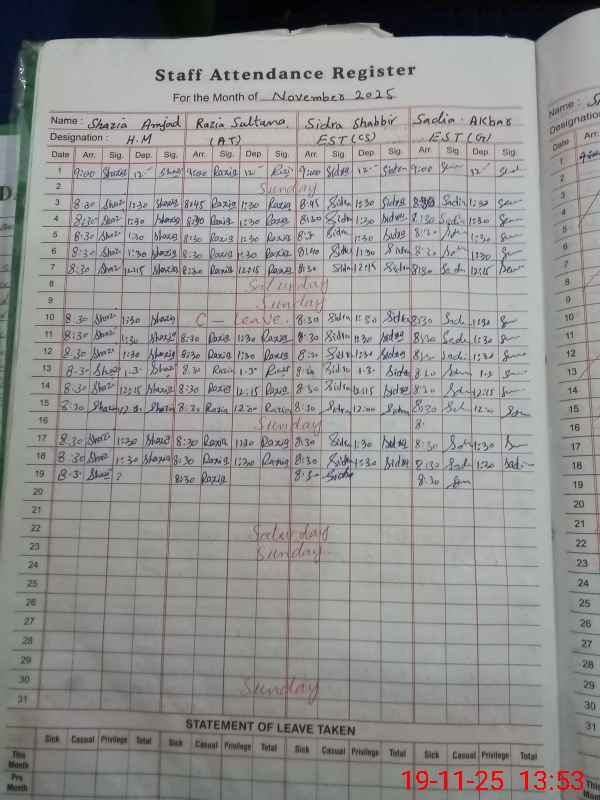 Staff Attendance Register
For the Month of November 2025
Name: Shazia Amjad Razia Sultana. Sidra Shabbir Sadia Akbar
Designation: H.M (AT) EST(CS) EST(G)
Date Arr. Sig. Dep. Sig. Arr. Sig. Dep. Sig. Arr. Sig. Dep. Sig. Arr. Sig. Dep. Sig.
1 9:00 Shazia 12 Shazia 9:00 Razia 12 Razia 9:00 Sidra 12 Sidra 9:00 12
2 Sunday
3 8:30 1:30 Shazia 8:45 Razia 1:30 Razia 8:45 Sidra 1:30 Sidra Sadia 1:30
4 8:30 1:30 Shazia 8:30 Razia 1:30 Razia 8:30 Sidra 1:30 Sidra 8:30 Sadia 1:30
5 8:30 1:30 Shazia 8:30 Razia 1:30 Razia Sidra 1:30 Sidra 8:30 1:30
6 8:30 1:30 Shazia 8:30 Razia 1:30 Razia 8:40 Sidra 1:30 Sidra 8:30 1:30
7 8:30 12:15 Shazia 8:30 Razia 12:15 Razia 8:30 Sidra 12:15 Sidra 8:30 12:15
8 Saturday
9 Sunday
10 8:30 1:30 Shazia C - Leave. 8:30 Sidra 1:30 Sidra 8:30 1:30
11 8:30 1:30 Shazia 8:30 Razia 1:30 Razia 8:30 Sidra 1:30 Sidra 8:30 Sadia 1:30
12 8:30 1:30 Shazia 8:30 Razia 1:30 Razia 8:30 Sidra 1:30 Sidra 8:30 Sadia 1:30
13 8:30 1:30 Shazia 8:30 Razia 1:30 Razia 8:30 Sidra 1:30 Sidra 8:30 1:30
14 8:30 12:15 Shazia 8:30 Razia 12:15 Razia 8:30 Sidra 12:15 Sidra 8:30 12:15
15 8:30 Shazia 8:30 Razia 12:00 Razia 8:30 Sidra 12:00 Sidra 8:30 12:00
16 Sunday 8:
17 8:30 1:30 Shazia 8:30 Razia 1:30 Razia 8:30 Sidra 1:30 Sidra 8:30 1:30
18 8:30 1:30 Shazia 8:30 Razia 1:30 Razia 8:30 Sidra 1:30 Sidra 8:30 1:30 Sadia
19 8:30 ? 8:30 Razia 8:30 Sidra 8:30
20
21
22 Saturday
23 Sunday
24
25
26
27
28
29
30 Sunday
31
STATEMENT OF LEAVE TAKEN
Sick Casual Privilege Total Sick Casual Privilege Total Sick Casual Privilege Total Sick Casual Privilege Total
This Month
Pre Month
19-11-25 13:53